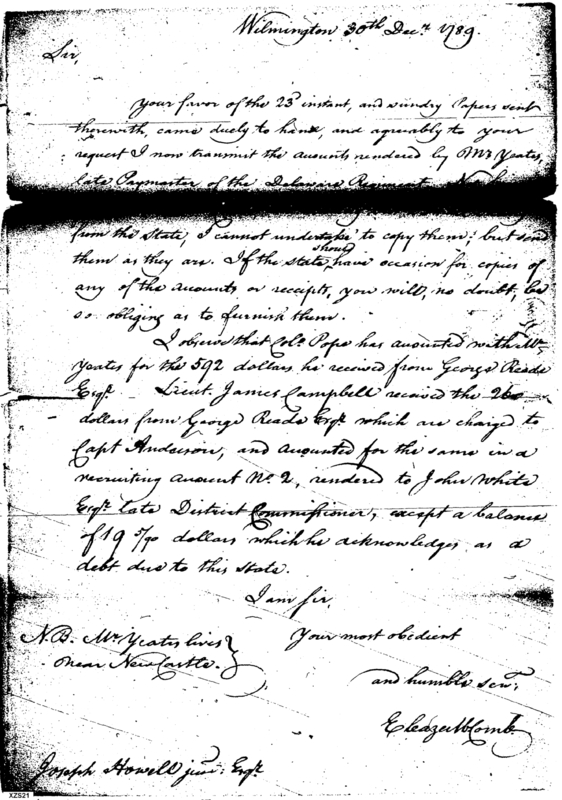 Wilmington 30th Decr. 1789.
Sir,
Your favor of the 23d instant, and sundry Papers sent
therewith, came duely to hand, and agreeably to your
request I now transmit the accounts rendered by Mr. Yeates,
late Paymaster of the Delaware Regiment
from the State, I cannot undertake to copy them; but send
them as they are. If the state should have occasion for copies of
any of the accounts or receipts, you will, no doubt, be
so obliging as to furnish them.
I observe that Colo. Pope has accounted with Mr.
Yeates for the 592 dollars he received from George Reade
Esqr. Lieut. James Campbell received the 260
dollars from George Reade Esqr. which are charged to
Capt Anderson, and accounted for the same in a
recruiting account No. 2, rendered to John White
Esqr. late District Commissioner, except a balance
of 19 5/90 dollars which he acknowledges as a
debt due to this State.
I am Sir,
Your most obedient
and humble servt.
Eleazer McComb
N.B. Mr. Yeates lives
near New Castle.
Joseph Howell junr: Esqr.
XZS21